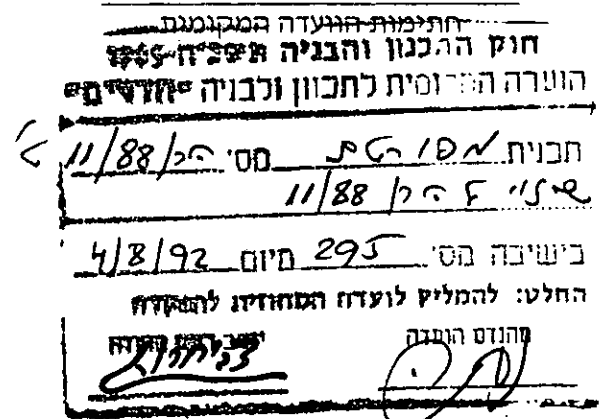 חתימות הוועדה המקומית
חוק התכנון והבניה תשכ"ה 1965
הועדה המקומית לתכנון ולבניה
תכנית מפורטת מס' הר/11/88
שינוי ל הר/11/88
בישיבה מס' 295 מיום 4/8/92
החלט: להמליץ לועדה המחוזית להפקדה
יושב ראש הועדה מהנדס הועדה